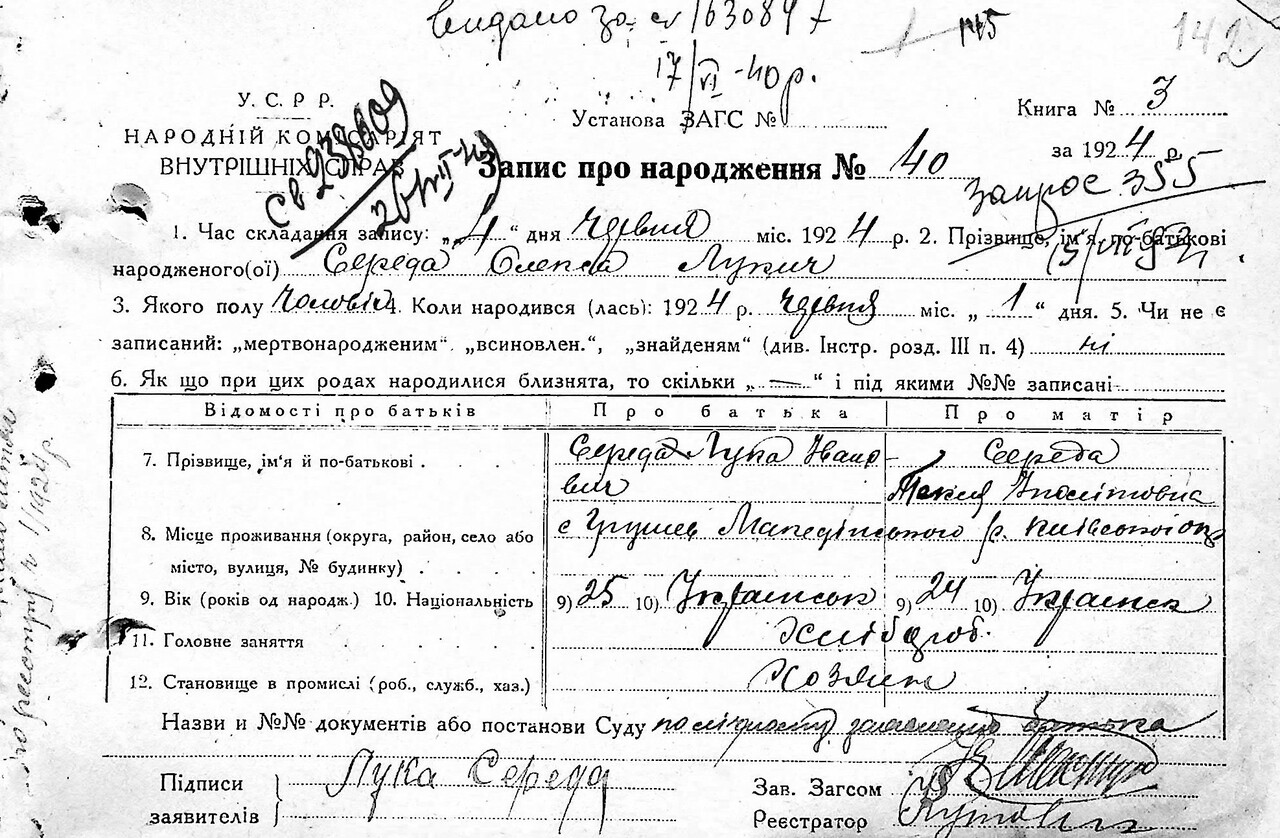 видано за с. 163089
145
142
17/VI-40р.
У.С.Р.Р.
НАРОДНІЙ КОМІСАРІЯТ
ВНУТРІШНІХ СПРАВ
Св 238609
Установа ЗАГС №
Книга № 3
за 1924 р.
Запис про народження № 40
запрос 355
1. Час складання запису: „4“ дня червня міс. 1924 р. 2. Прізвище, ім'я, по-батькові
народженого(ої) Середа Олекса Лукич
3. Якого полу чоловіч 4. Коли народився (лась): 1924 р. червня міс. „1“ дня. 5. Чи не є
записаний: „мертвонародженим“. „всиновлен.“, „знайденям“ (див. Інстр. розд. III п. 4) ні
6. Як що при цих родах народилися близнята, то скільки „—“ і під якими №№ записані
Відомості про батьків Про батька Про матір
7. Прізвище, ім'я й по-батькові Середа Лука Івано- Середа
вич Текля Іполітовна
8. Місце проживання (округа, район, село або с Грушев Македінського р. Київської окр
місто, вулиця, № будинку)
9. Вік (років од народж.) 10. Національність 9) 25 10) Українськ 9) 24 10) Українск
11. Головне заняття Хлібороб.
12. Становище в промислі (роб., служб., хаз.) Хозяин
Назви и №№ документів або постанови Суду по батька
Підписи
заявителів
Лука Середа
Зав. Загсом
Реєстратор